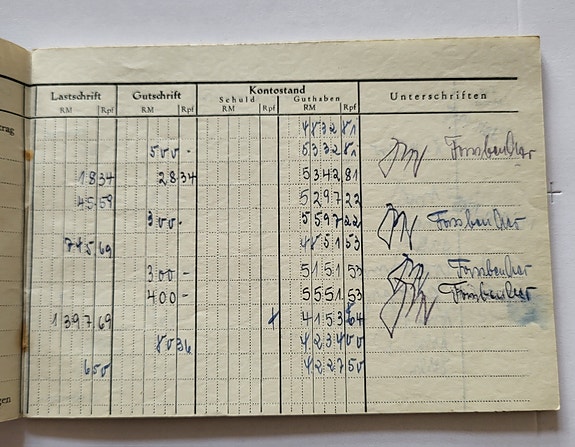 Lastschrift Gutschrift Kontostand Unterschriften
Schuld Guthaben
RM Rpf RM Rpf RM Rpf RM Rpf
trag
4832 81
500 - 5332 81
18 34 28 34 5342 81
45 59 5297 22
300 - 5597 22
745 69 4851 53
300 - 5151 53
400 - 5551 53
1397 69 4153 64
80 36 4234 00
6 50 4227 50
gen